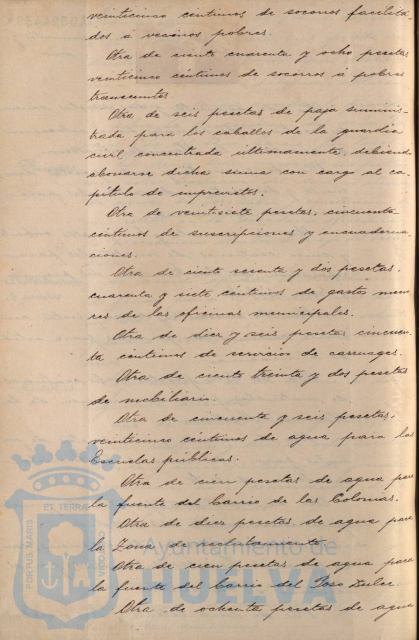 veinticinco céntimos de socorros facilita-
dos á vecinos pobres.
Otra de ciento cuarenta y ocho pesetas
veinticinco céntimos de socorros á pobres
transeuntes
Otra de seis pesetas de paja suminis-
trada para los caballos de la guardia
civil concentrada últimamente, debiendo
abonarse dicha suma con cargo al ca-
pítulo de imprevistos.
Otra de veintisiete pesetas, cincuenta
céntimos de suscripciones y encuaderna-
ciones.
Otra de ciento sesenta y dos pesetas,
cuarenta y siete céntimos de gastos meno-
res de las oficinas municipales.
Otra de diez y seis pesetas cincuen-
ta céntimos de servicios de carruages.
Otra de ciento treinta y dos pesetas
de mobiliario.
Otra de cincuenta y seis pesetas,
veinticinco céntimos de agua para las
Escuelas públicas.
Otra de cien pesetas de agua para
la fuente del barrio de las Colonias.
Otra de diez pesetas de agua para
la Zona de reclutamiento.
Otra de cien pesetas de agua para
la fuente del barrio del Pozo Dulce.
Otra de ochenta pesetas de agua
PORTUS MARIS
ET TERRAE
CUSTODIA
Ayuntamiento de
HUELVA